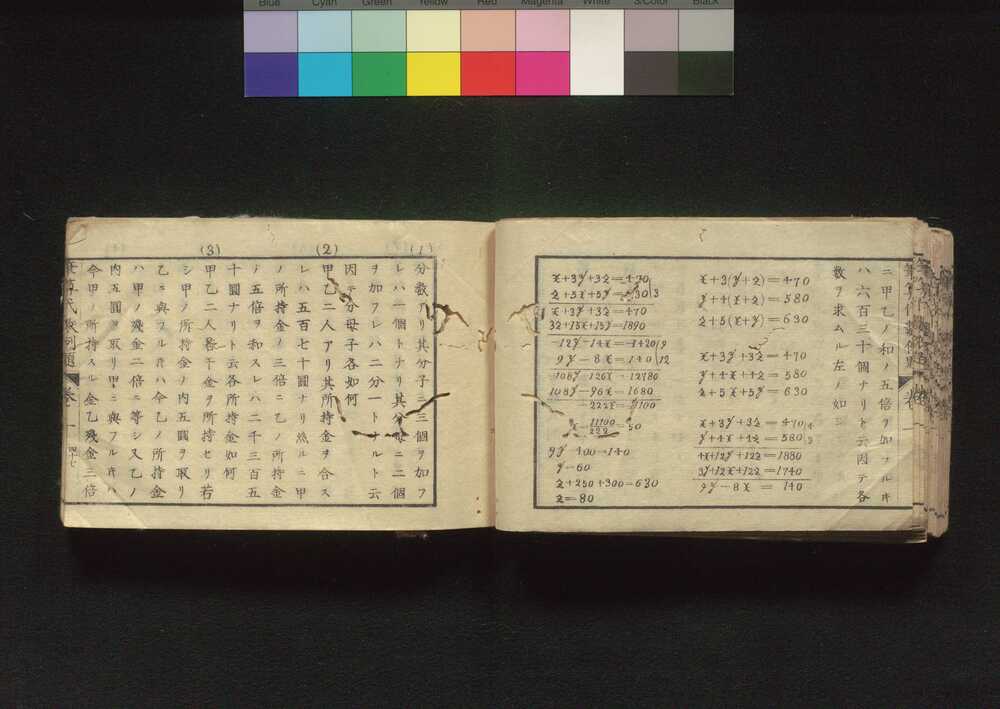 Blue Cyan Green Yellow Red Magenta White 3/Color Black
ニ甲乙ノ和ノ五倍ヲ加フルキ
ハ六百三十個ナリト云因テ各
數ヲ求ムル左ノ如シ
x+3(y+z)=470
y+4(x+z)=580
z+5(x+y)=630
x+3y+3z=470
y+4x+4z=580
z+5x+5y=630
x+3y+3z=470
y+4x+4z=580
4x+12y+12z=1880
3y+12x+12z=1740
9y-8x=140
x+3y+3z=470
z+5x+5y=630 3
x+3y+3z=470
3z+15x+15y=1890
-12y-14x=-1420 9
9y-8x=140 12
-108y-126x=-12780
108y-96x=1680
-222x=-11100
x=11100/222=50
9y-400=140
y=60
z+250+300=630
z=80
(1)
分數アリ其分子ニ三個ヲ加フ
レハ一個トナリ其分母ニ二個
ヲ加フレハ二分一トナルト云
因テ分母子各如何
(2)
甲乙二人アリ其所持金ヲ合ス
レハ五百七十圓ナリ然ルニ甲
ノ所持金ノ三倍ニ乙ノ所持金
ノ五倍ヲ和スレハ二千三百五
十圓ナリト云各所持金如何
(3)
甲乙二人各干金ヲ所持セリ若
シ甲ノ所持金ノ内五圓ヲ取リ
乙ニ與フルキハ今乙ノ所持金
ハ甲ノ殘金二倍ニ等シ又乙ノ
内五圓ヲ取リ甲ニ與フルキハ
今甲ノ所持スル金乙殘金三倍
筆算代數例題 卷 一 四十七